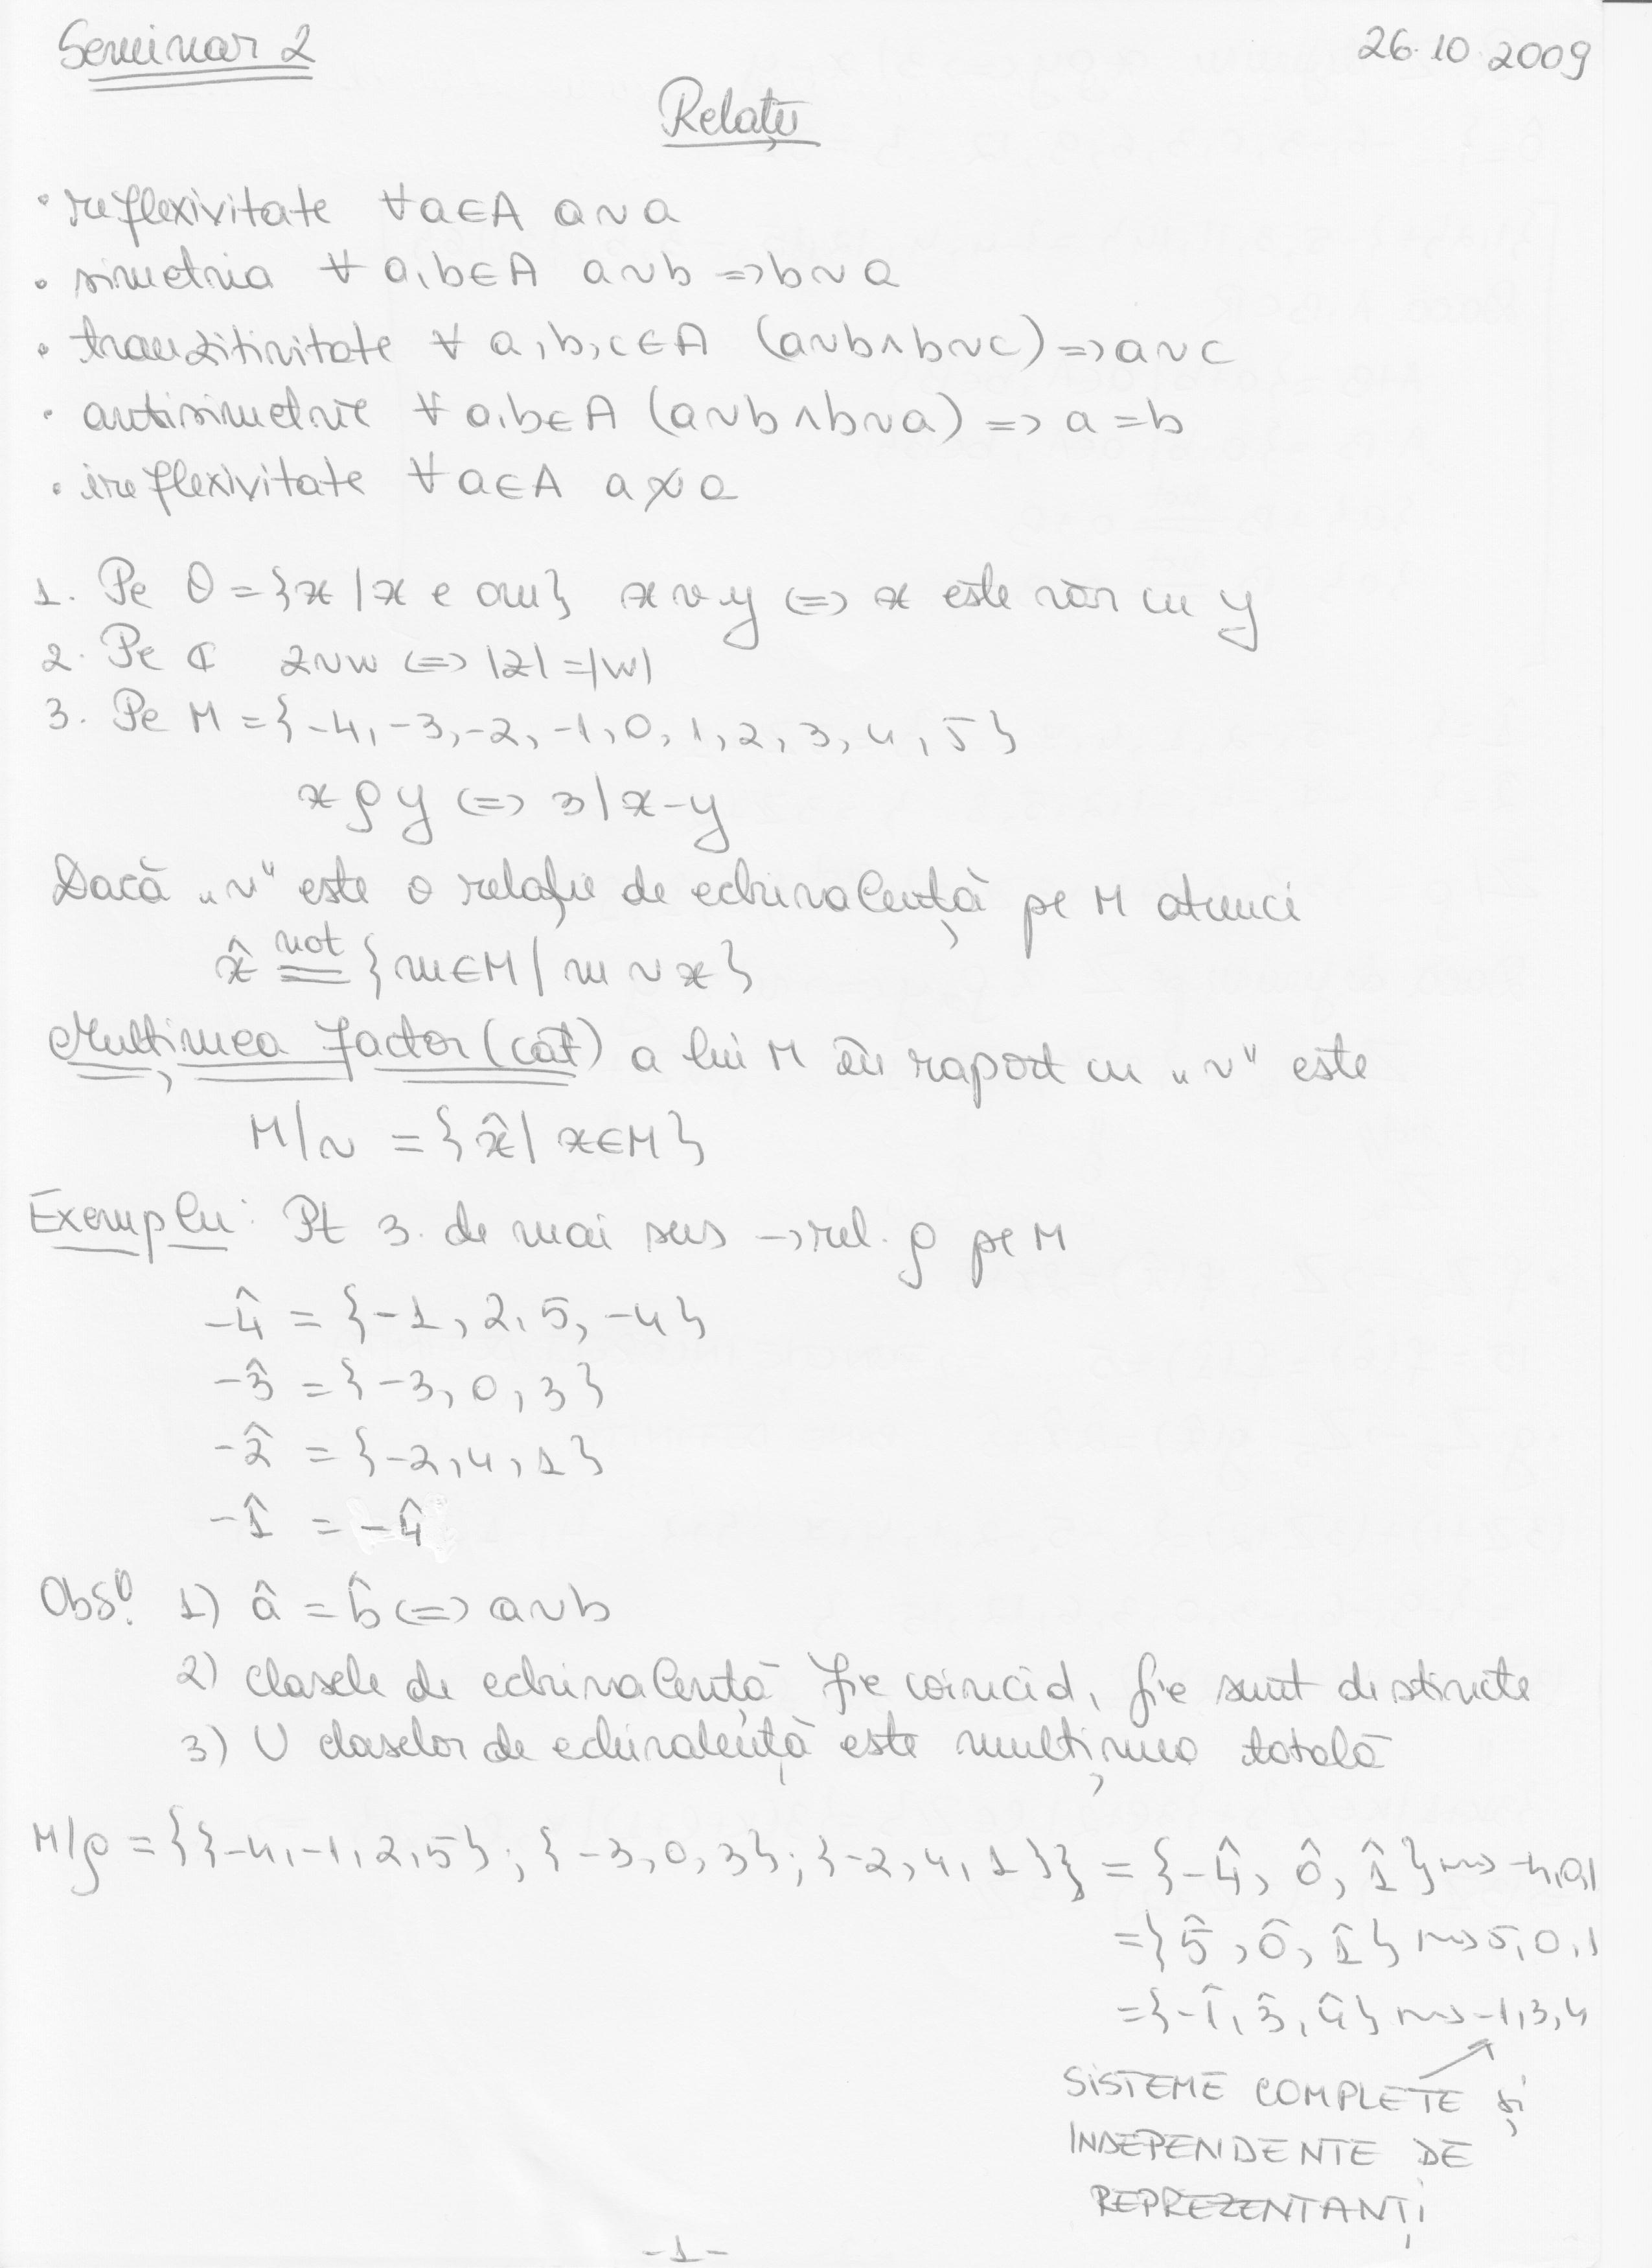 Seminar 2
26.10.2009
Relații
• reflexivitate ∀a∈A a∼a
• simetria ∀ a,b∈A a∼b => b∼a
• tranzitivitate ∀ a,b,c∈A (a∼b∧b∼c)=>a∼c
• antisimetrie ∀ a,b∈A (a∼b∧b∼a) => a=b
• ireflexivitate ∀a∈A a≁a
1. Pe O={x|x e om} x∼y <=> x este văr cu y
2. Pe ℂ z∼w <=> |z|=|w|
3. Pe M={-4,-3,-2,-1,0,1,2,3,4,5}
xρy <=> 3|x-y
Dacă „∼" este o relație de echivalență pe M atunci
x̂ not== {m∈M| m∼x}
Mulțimea factor (cât) a lui M în raport cu „∼" este
M/∼ = {x̂| x∈M}
Exemplu: Pt 3. de mai sus → rel. ρ pe M
-4̂ = {-1,2,5,-4}
-3̂ = {-3,0,3}
-2̂ = {-2,4,1}
-1̂ = -4̂
Obs! 1) â = b̂ <=> a∼b
2) clasele de echivalență fie coincid, fie sunt distincte
3) U claselor de echivalență este mulțimea totală
M/ρ = {{-4,-1,2,5}; {-3,0,3}; {-2,4,1}} = {-4̂, 0̂, 1̂} ⇝ -4,0,1
={5̂, 0̂, 1̂} ⇝ 5,0,1
={-1̂, 3̂, 4̂} ⇝ -1,3,4
SISTEME COMPLETE și
INDEPENDENTE DE
REPREZENTANȚI
-1-